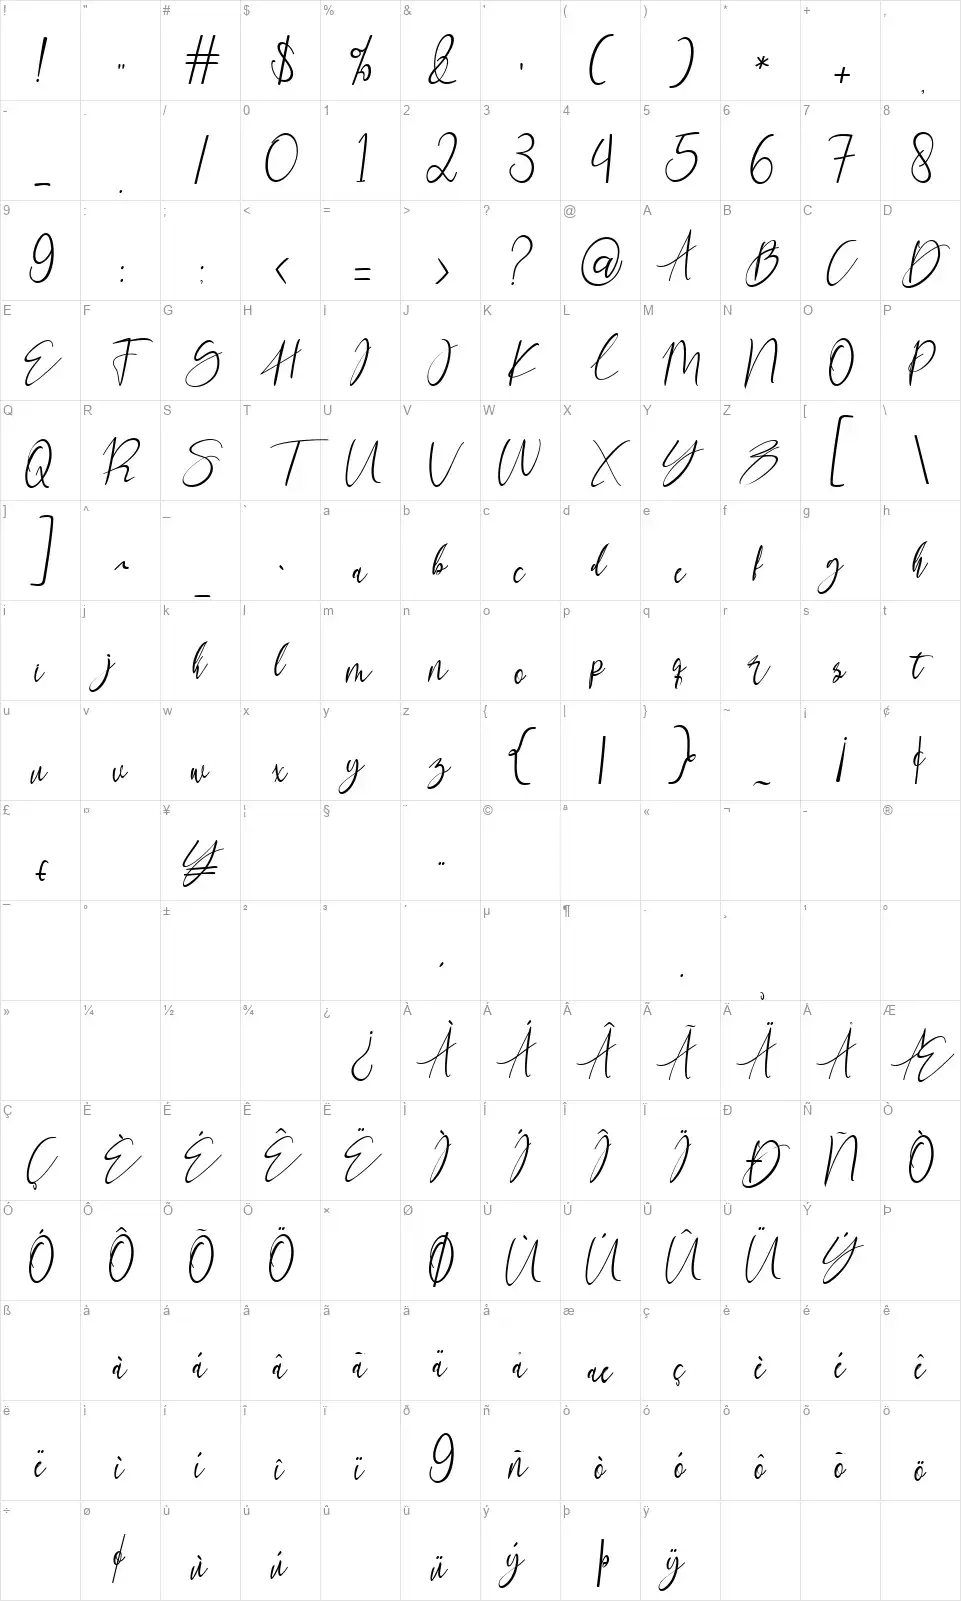 ! " # $ % & ' ( ) * + ,
! " # $ % & ' ( ) * + ,
- . / 0 1 2 3 4 5 6 7 8
- . / 0 1 2 3 4 5 6 7 8
9 : ; < = > ? @ A B C D
9 : ; < = > ? @ A B C D
E F G H I J K L M N O P
E F G H I J K L M N O P
Q R S T U V W X Y Z [ \
Q R S T U V W X Y Z [ \
] ^ _ ` a b c d e f g h
] ^ _ ` a b c d e f g h
i j k l m n o p q r s t
i j k l m n o p q r s t
u v w x y z { | } ~ ¡ ¢
u v w x y z { | } ~ ¡ ¢
£ ¤ ¥ ¦ § ¨ © ª « ¬ - ®
€ ¥ ¨
¯ ° ± ² ³ ´ µ ¶ · ¸ ¹ º
´ · ¸
» ¼ ½ ¾ ¿ À Á Â Ã Ä Å Æ
¿ À Á Â Ã Ä Å Æ
Ç È É Ê Ë Ì Í Î Ï Ð Ñ Ò
Ç È É Ê Ë Ì Í Î Ï Ð Ñ Ò
Ó Ô Õ Ö × Ø Ù Ú Û Ü Ý Þ
Ó Ô Õ Ö Ø Ù Ú Û Ü Ý
ß à á â ã ä å æ ç è é ê
à á â ã ä å æ ç è é ê
ë ì í î ï ð ñ ò ó ô õ ö
ë ì í î ï 9 ñ ò ó ô õ ö
÷ ø ù ú û ü ý þ ÿ
ø ù ú ü ý þ ÿ